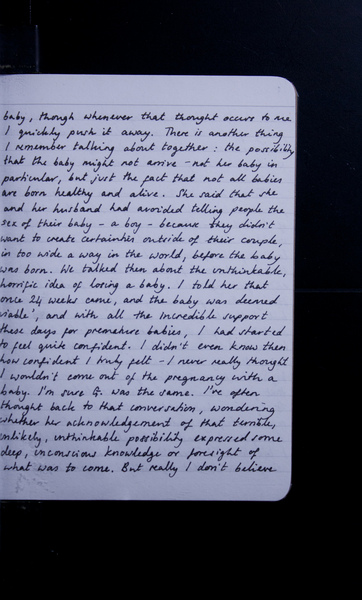 baby, though whenever that thought occurs to me
I quickly push it away. There is another thing
I remember talking about together: the possibility
that the baby might not arrive - not her baby in
particular, but just the fact that not all babies
are born healthy and alive. She said that she
and her husband had avoided telling people the
sex of their baby - a boy - because they didn't
want to create certainties outside of their couple,
in too wide a way in the world, before the baby
was born. We talked then about the unthinkable,
horrific idea of losing a baby. I told her that
once 24 weeks came, and the baby was deemed
viable', and with all the incredible support
these days for premature babies, I had started
to feel quite confident. I didn't even know then
how confident I truly felt - I never really thought
I wouldn't come out of the pregnancy with a
baby. I'm sure G. was the same. I've often
thought back to that conversation, wondering
whether her acknowledgement of that terrible,
unlikely, unthinkable possibility expressed some
deep, inconscious knowledge or foresight of
what was to come. But really I don't believe